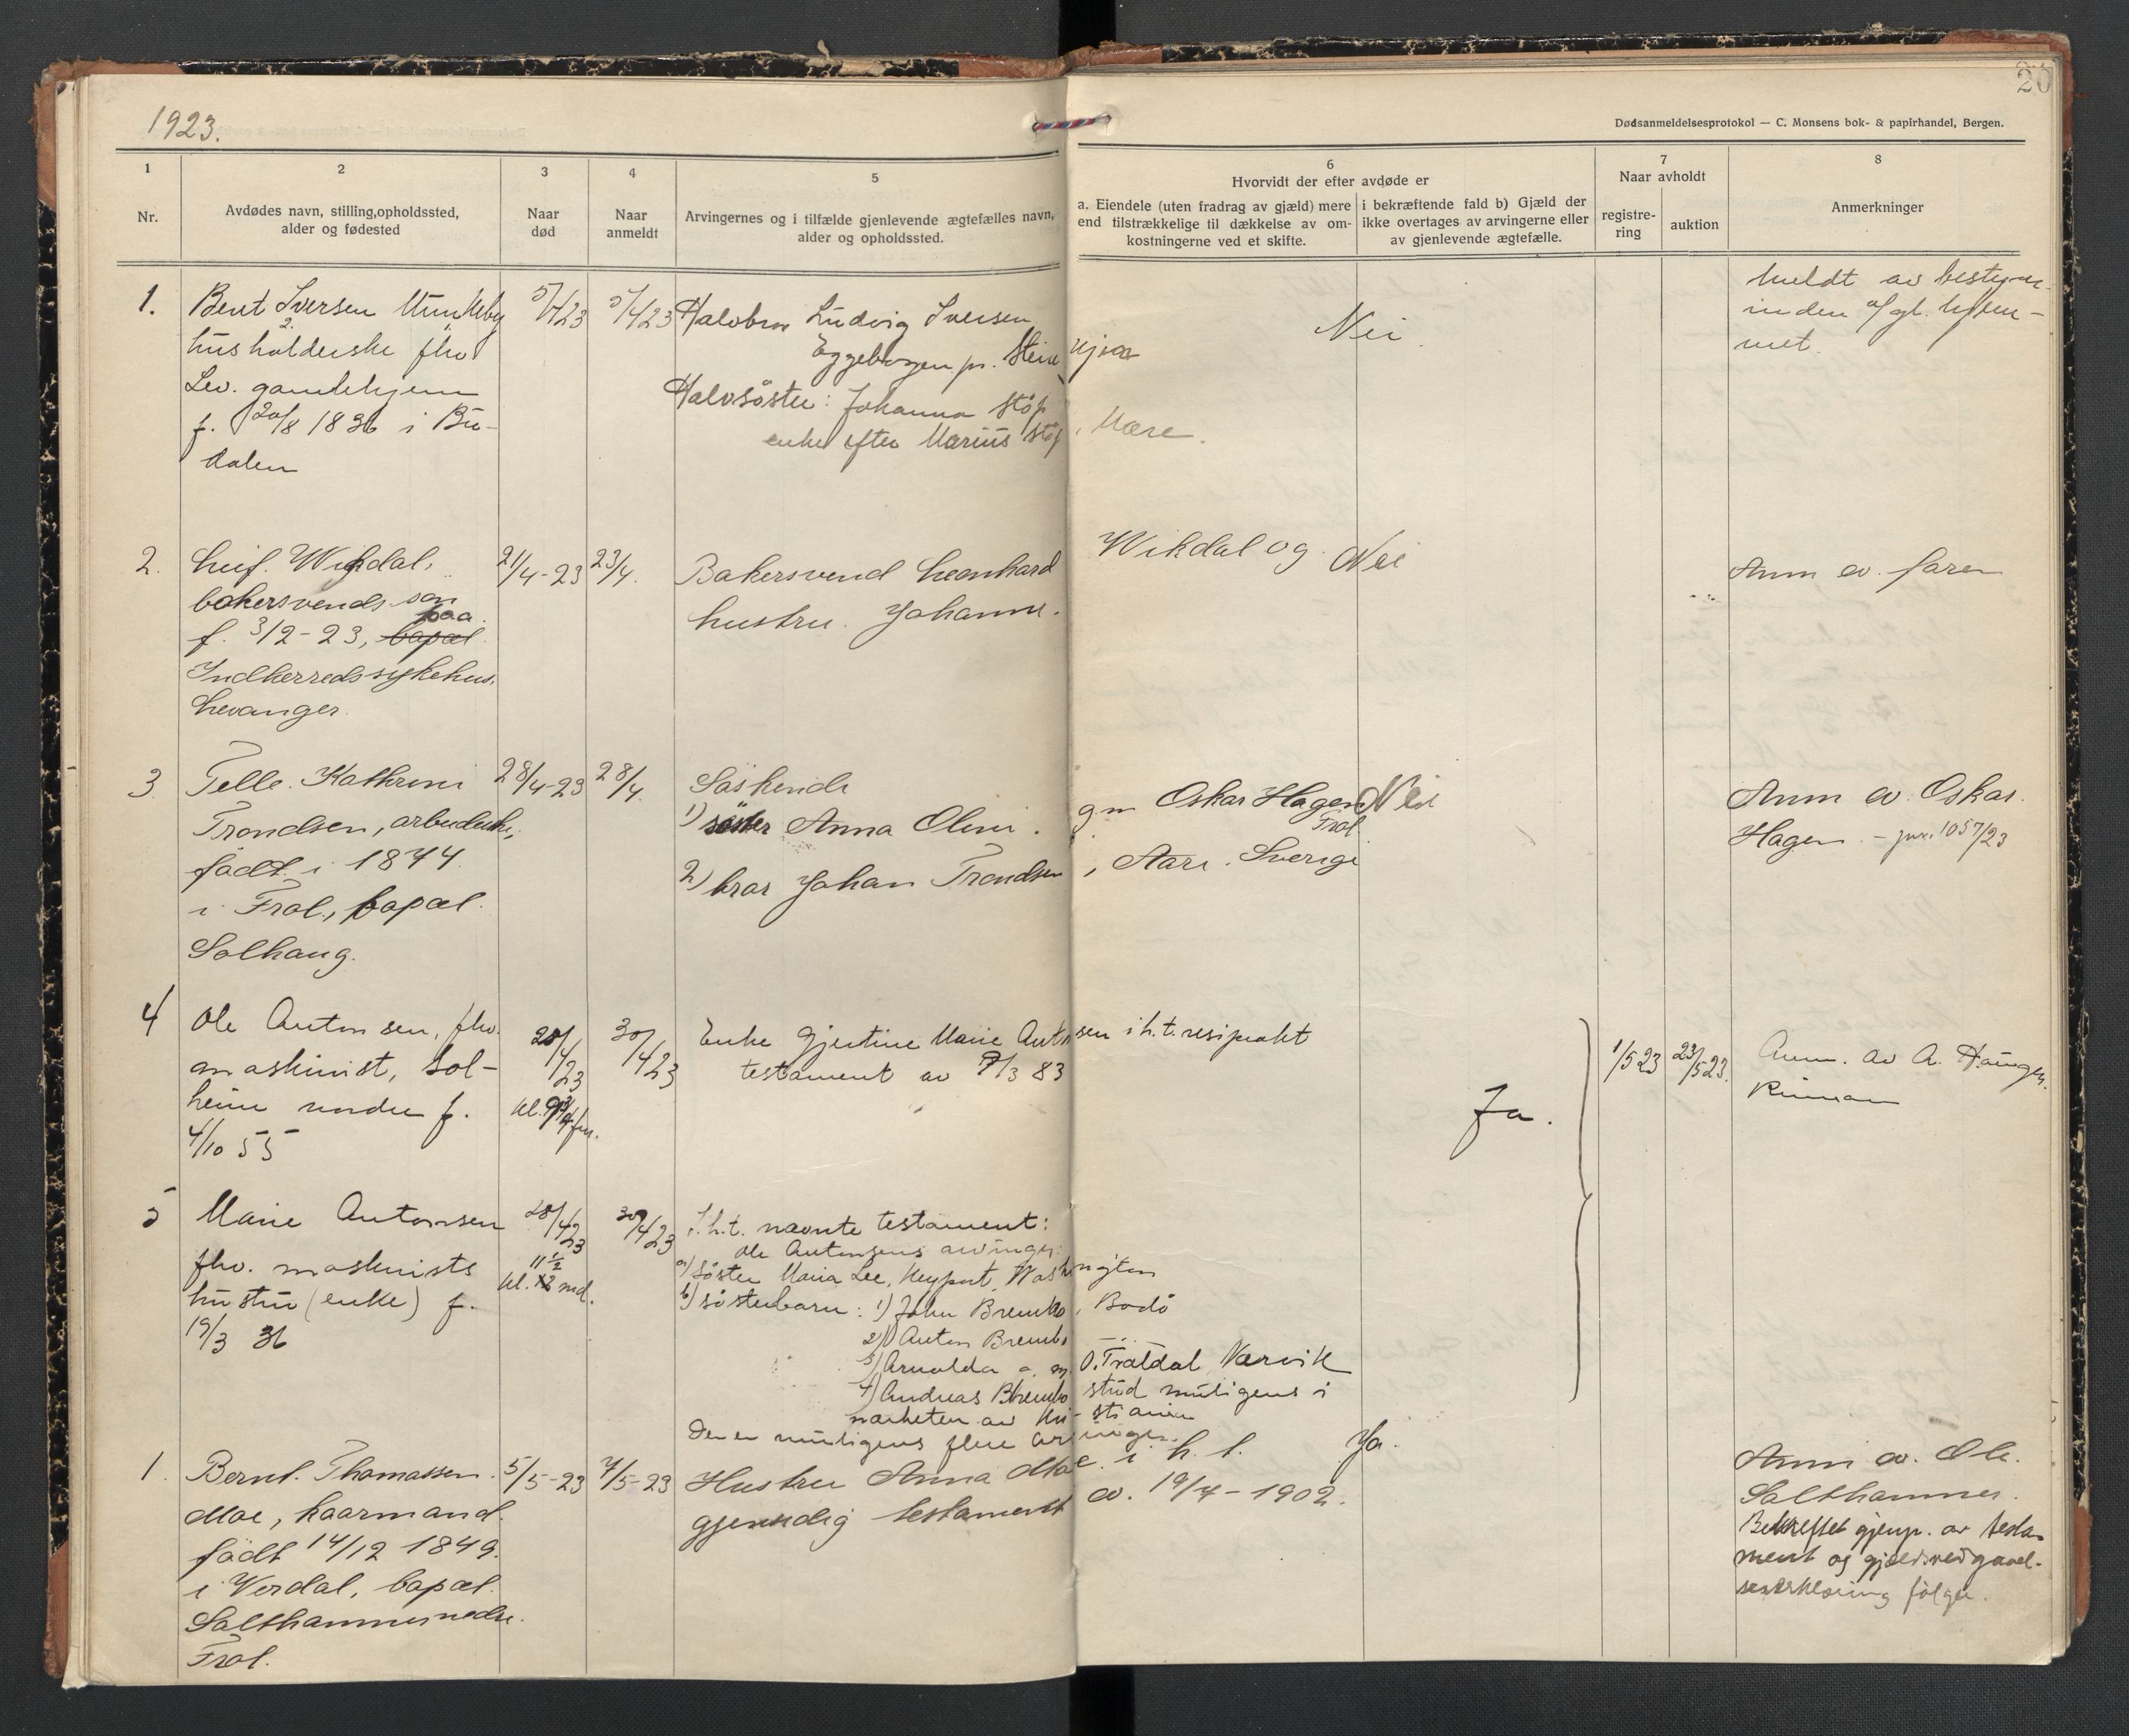 1923.
20
Dødsanmeldelsesprotokol — C. Monsens bok- & papirhandel, Bergen.
1
Nr.
2
Avdødes navn, stilling, opholdssted,
alder og fødested
3
Naar
død
4
Naar
anmeldt
5
Arvingernes og i tilfælde gjenlevende ægtefælles navn,
alder og opholdssted.
6
Hvorvidt der efter avdøde er
a. Eiendele (uten fradrag av gjæld) mere
end tilstrækkelige til dækkelse av om-
kostningerne ved et skifte.
i bekræftende fald b) Gjæld der
ikke overtages av arvingerne eller
av gjenlevende ægtefælle.
7
Naar avholdt
registre-
ring
auktion
8
Anmerkninger
1.
Berit Iversen Munkeby
husholderske fhv
Lev. gamlehjem
f. 20/8 1836 i Bu-
dalen
5/4 23
5/4 23
Halvbror Ludvig Iversen
Eggebogen pr. Steinkjer
Halvsöster: Johanna Stöp
enke efter Marius Stöp, Mære.
Nei.
Meldt av bestyre-
inden af gl. hjem-
met.
2.
Leif Wikdal,
bakersvends sön
f. 3/2-23, bopæl paa
Indherreds sykehus,
Levanger.
21/4-23
23/4.
Bakersvend Leonhard Wikdal og
hustru Johanne.
Nei
Anm av faren
3
Pelle Kathrine
Trondsen, arbeiderske,
födt i 1844
i Frol, bopæl
Solhaug.
28/4-23
28/4.
Söskende
1) söster Anna Oline gm Oskar Hagen
Frol
2) bror Johan Trondsen, Aare, Sverige
Nei
Anm av Oskar
Hagen - jnr. 1057/23
4
Ole Antonsen, fhv.
maskinist, Sol-
heim nedre f.
4/10 55
28/4 23
kl. 9 3/4 fm.
30/4 23
Enke Gjertine Marie Antonsen i h. t. resiprokt
testament av 7/3 83
Ja.
1/5 23
23/5 23.
Anm. av A. Haugen,
Rinnan
5
Marie Antonsen
fhv. maskinists
hustru (enke) f.
19/3 36
28/4 23
11 1/2
kl. 12 md.
30/4 23
I. h. t. nævnte testament:
Ole Antonsens arvinger:
a) Söster Maria Lee, Keyport, Washington
b) söstersbarn: 1) John Brembo, Bodö
2) Anton Brembo — " —
3) Arnolda g. m. O. Trældal Narvik
4) Andreas Brembo stud muligens i
nærheten av Kri-stiania
Der er muligens flere arvinger.
1.
Bernt Thomassen
Moe, kaarmand.
födt 14/12 1849.
i Verdal, bopæl.
Salthammer nedre.
Frol.
5/5-23
7/5-23
Hustru Anna Moe. i h. t.
gjensidig testament av. 19/4-1902.
Ja.
Anm av. Ole
Salthammer.
Bekreftet gjenp. av testa-
ment og gjældsvedgaael-
seserklæring følger.